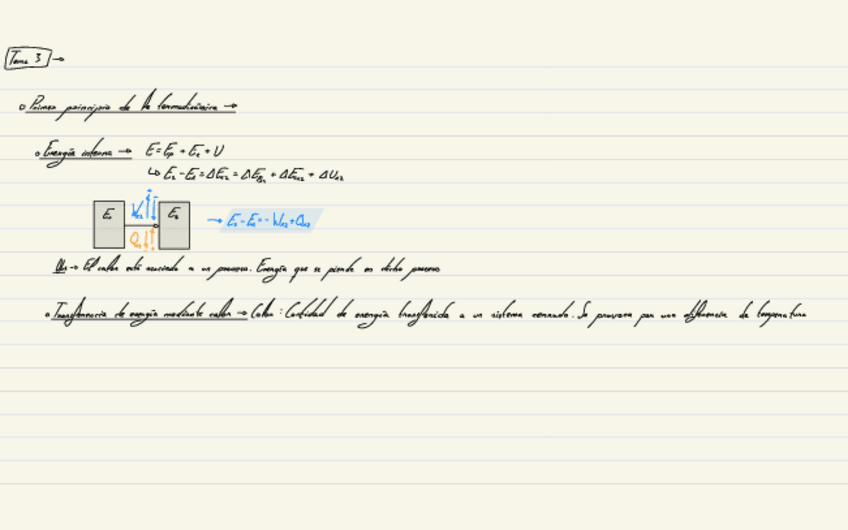 Tema 3 →
○ Primer principio de la termodinámica →
○ Energía interna → E = Ep + Ec + U
↳ E₂ - E₁ = ΔE₁₂ = ΔEp₁₂ + ΔEc₁₂ + ΔU₁₂
E₁ W₁₂ E₂ → E₂ - E₁ = - W₁₂ + Q₁₂
Q₁₂
→ El calor está asociado a un proceso. Energía que se pierde en dicho proceso
○ Transferencia de energía mediante calor → Calor: Cantidad de energía transferida a un sistema cerrado. Se provoca por una diferencia de temperatura